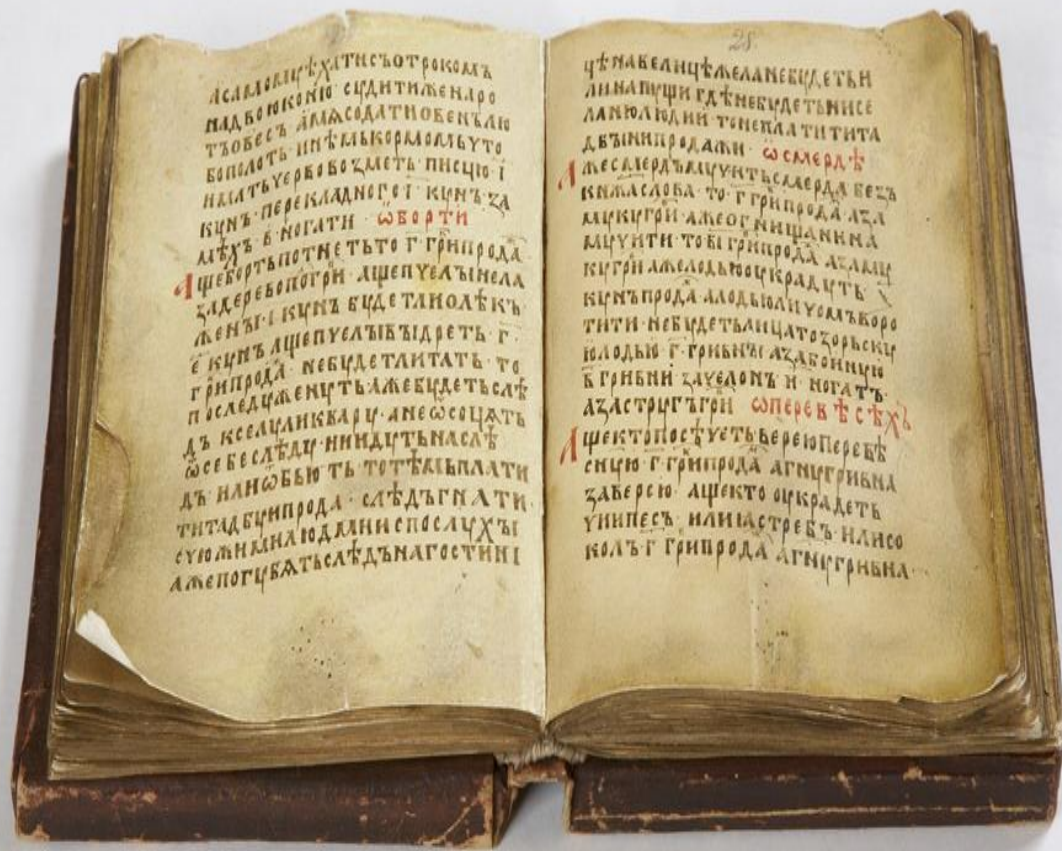 АСАМОМѸѢХАТИСЪОТРОКОМЪ
НАДВОЮКОНЮ· СѸДИТИЖЕНАРО
ТЪОВЕСЪ· АМѦСОДАТИОВЕНЪЛЮ
БОПОЛОТЬ· ИНѢМЬКОРМОМЬѸТО
ИМАТЬЧЕРЕВОВОЗМЕТЬ· ПИСЦЮ·І·
КѸНЪ· ПЕРЕКЛАДНОГО·І· КѸНЪ·ЗА
МѢХЪ·В· НОГАТИ· ѠБОРТИ
АЩЕБОРТЬПОТНЕТЬТО·Г· ГРИПРОДА·
ЗАДЕРЕВОПОГРИ· АЩЕПЧЕЛЫНЕЛА
ЖЕНЫ·І·КѸНЪ· БѸДЕТЛИОЛѢКЪ·
Е·КѸНЪ· АЩЕПЧЕЛЫВЫДРЕТЬ·Г·
ГРИПРОДА· НЕБѸДЕТЛИТАТЬ· ТО
ПОСЛЕДѸЖЕНѸТЬ· АЖЕБѸДЕТЬСЛѢ
ДЪ· КСЕЛѸЛИКВАРѸ· АНЕѠСОЦѦТЬ
ѠСЕБЕСЛѢДѸ· НИИДѸТЬНАСЛѢ
ДЪ· ИЛИѠБЬЮТЬ· ТОТѢМЬПЛАТИ
ТИТАДБѸИПРОДА· СЛѢДЪГНАТИ·
СЧЮЖИМИЛЮДМИИСПОСЛѸХЫ
АЖЕПОГѸБѦТЬСЛѢДЪНАГОСТИНІ
28
ЦѢНАВЕЛИЦѢЖЕЛАНЕБѸДЕТЬИ
ЛИНАПѸЩИГДѢНЕБѸДЕТЬНИСЕ
ЛАНИЛЮДИИ· ТОНЕПЛАТИТИТА
ДБЫНИПРОДАЖИ· ѠСМЕРДѢ
АЖЕСМЕРДЪМѸЧИТЬСМЕРДА БЕЗЪ
КНѦЖАСЛОВА· ТО·Г·ГРИПРОДА· АЗА
МѸКѸГРИ· АЖЕОГНИЩАНИНА
МѸЧИТИ· ТОВІГРИПРОДА· АЗАМѸ
КѸГРИ· АЖЕЛОДЬЮОѸКРАДѸТЬ·
КѸНЪПРОДА· АЛОДЬЮЛИЧОМЪВОРО
ТИТИ· НЕБѸДЕТЬЛИЦАТОЗОРЬСКѸ
ЮЛОДЬЮ·Г·ГРИВНЫ· АЗАБОИНѸЮ
В·ГРИВНИ· ЗАЧЕЛОНЪ·И·НОГАТЪ·
АЗАСТРѸГЪГРИ· ѠПЕРЕВѢСѢХЪ
АЩЕКТОПОСѢЧЕТЬВЕРЕЮПЕРЕВѢ
СНѸЮ·Г·ГРИПРОДА· АГНѸГРИВНА
ЗАВЕРЕЮ· АЩЕКТО ОѸКРАДЕТЬ
ЧИИПЕСЪ· ИЛИЯСТРЕБЪ· ИЛИСО
КОЛЪ·Г·ГРИПРОДА· АГНѸГРИВНА·